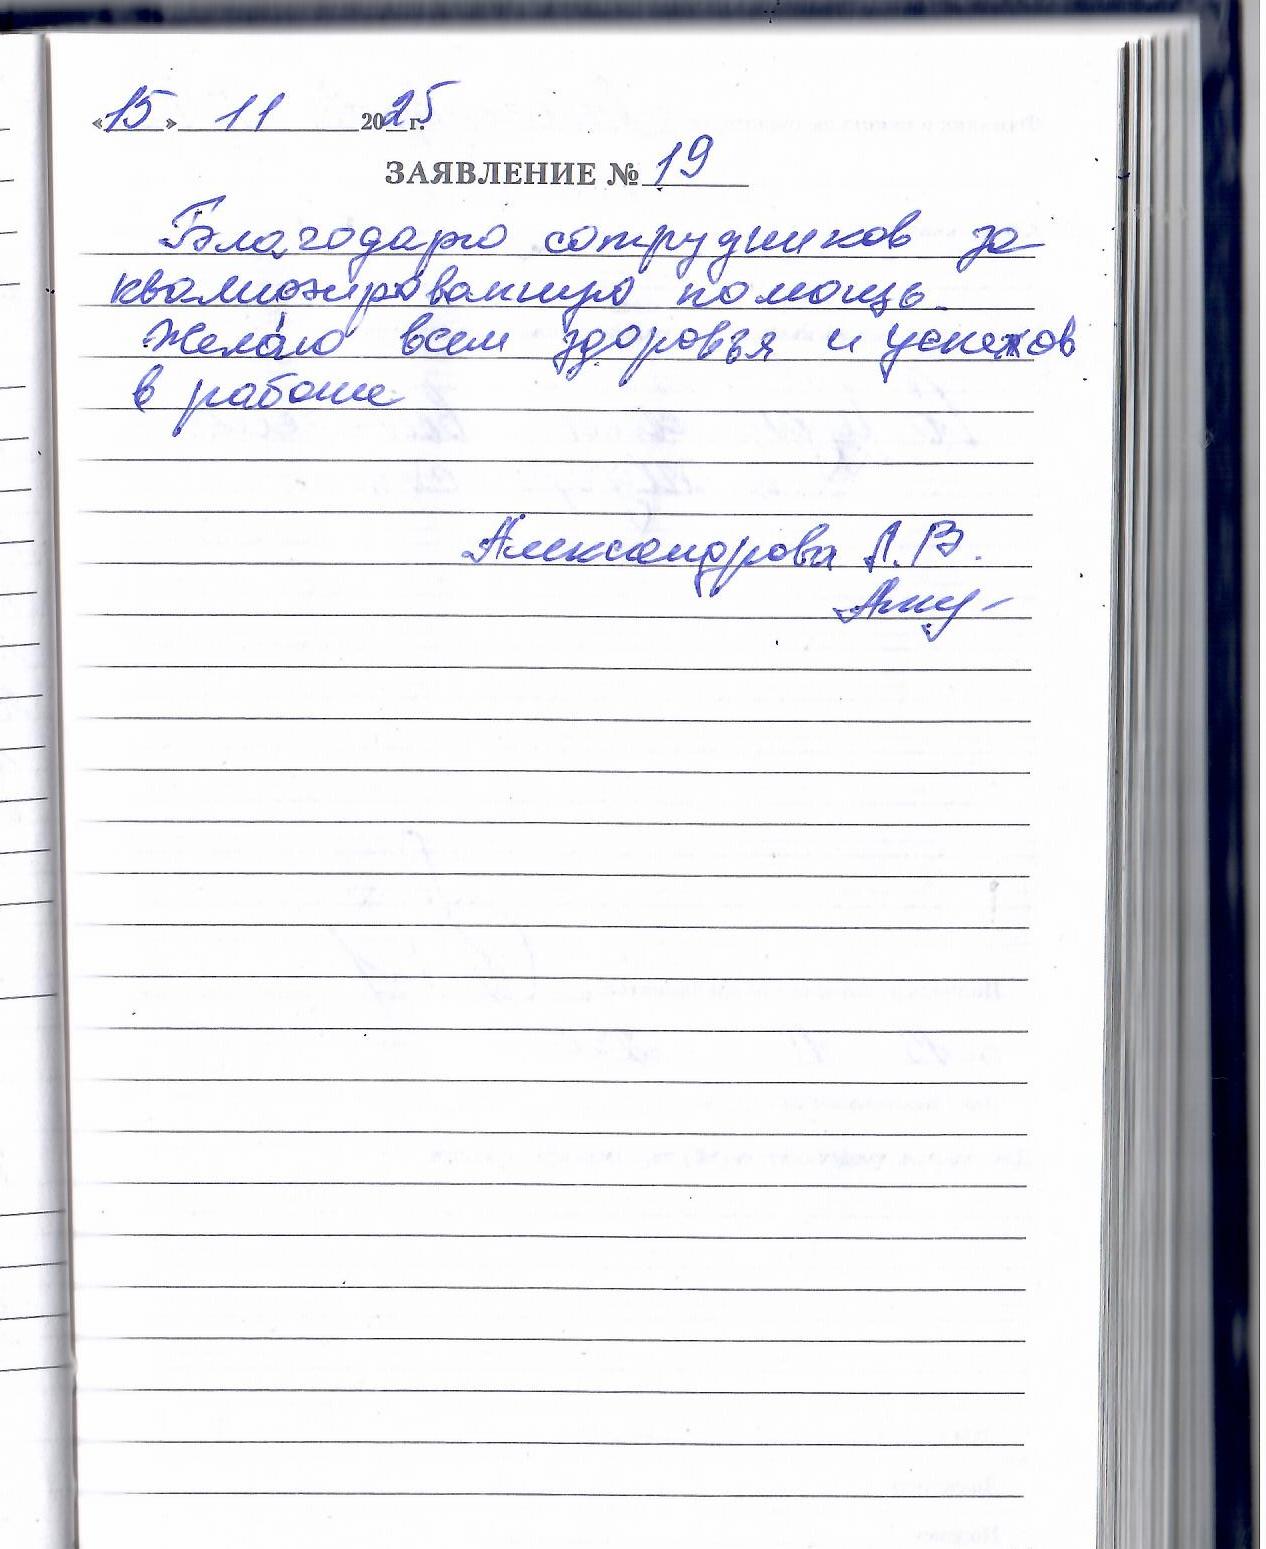 «15» 11 2025 г.
ЗАЯВЛЕНИЕ № 19
Благодарю сотрудников за
квалифицированную помощь.
Желаю всем здоровья и успехов
в работе
Александрова Л.В.